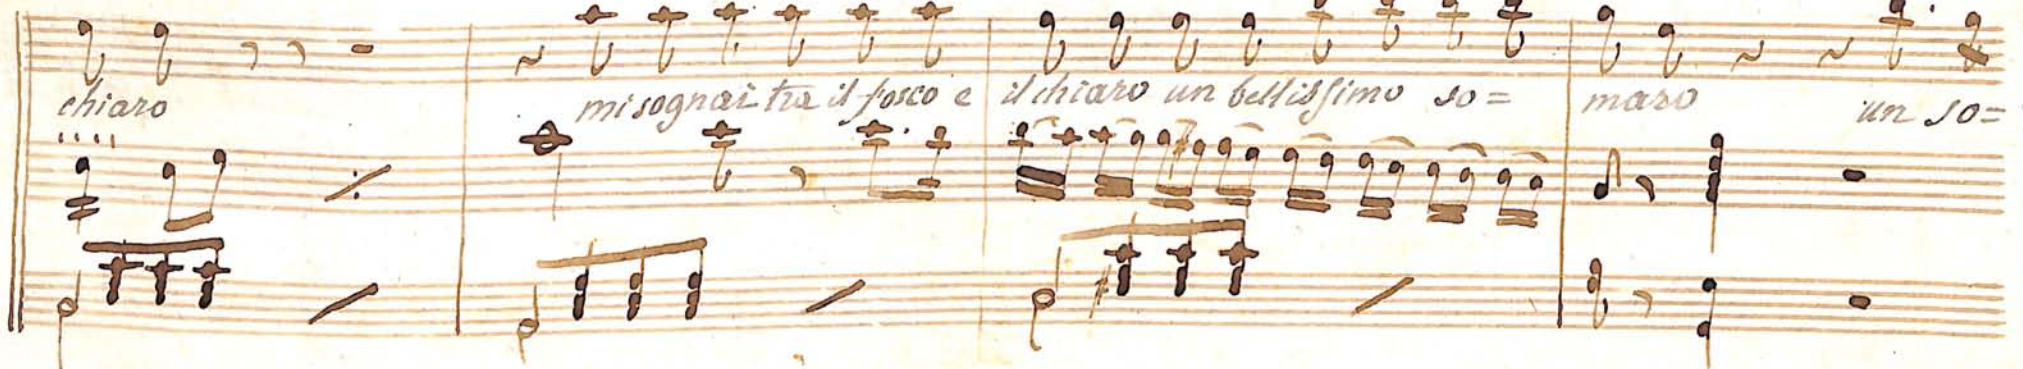 chiaro mi sognai tra il fosco e il chiaro un bellissimo so= maro un so=